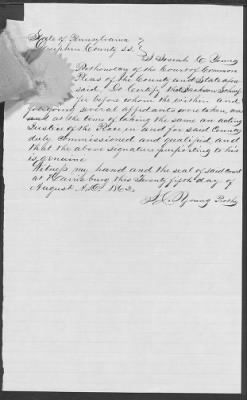 State of Pennsylvania }
Dauphin County SS. }
I Joseph C. Young
Prothonotary of the Court of Common
Pleas of the County and State afore
said, Do Certify that Jackson
fer before whom the within and
foregoing several affidavits were taken, was
and at the time of taking the same an acting
Justice of the Peace in and for said County
duly Commissioned and qualified and
that the above signature purporting to his
is genuine
Witness my hand and the seal of said Court
at Harrisburg this Twenty fifth day of
August A.D. 1862
J. C. Young Prothy